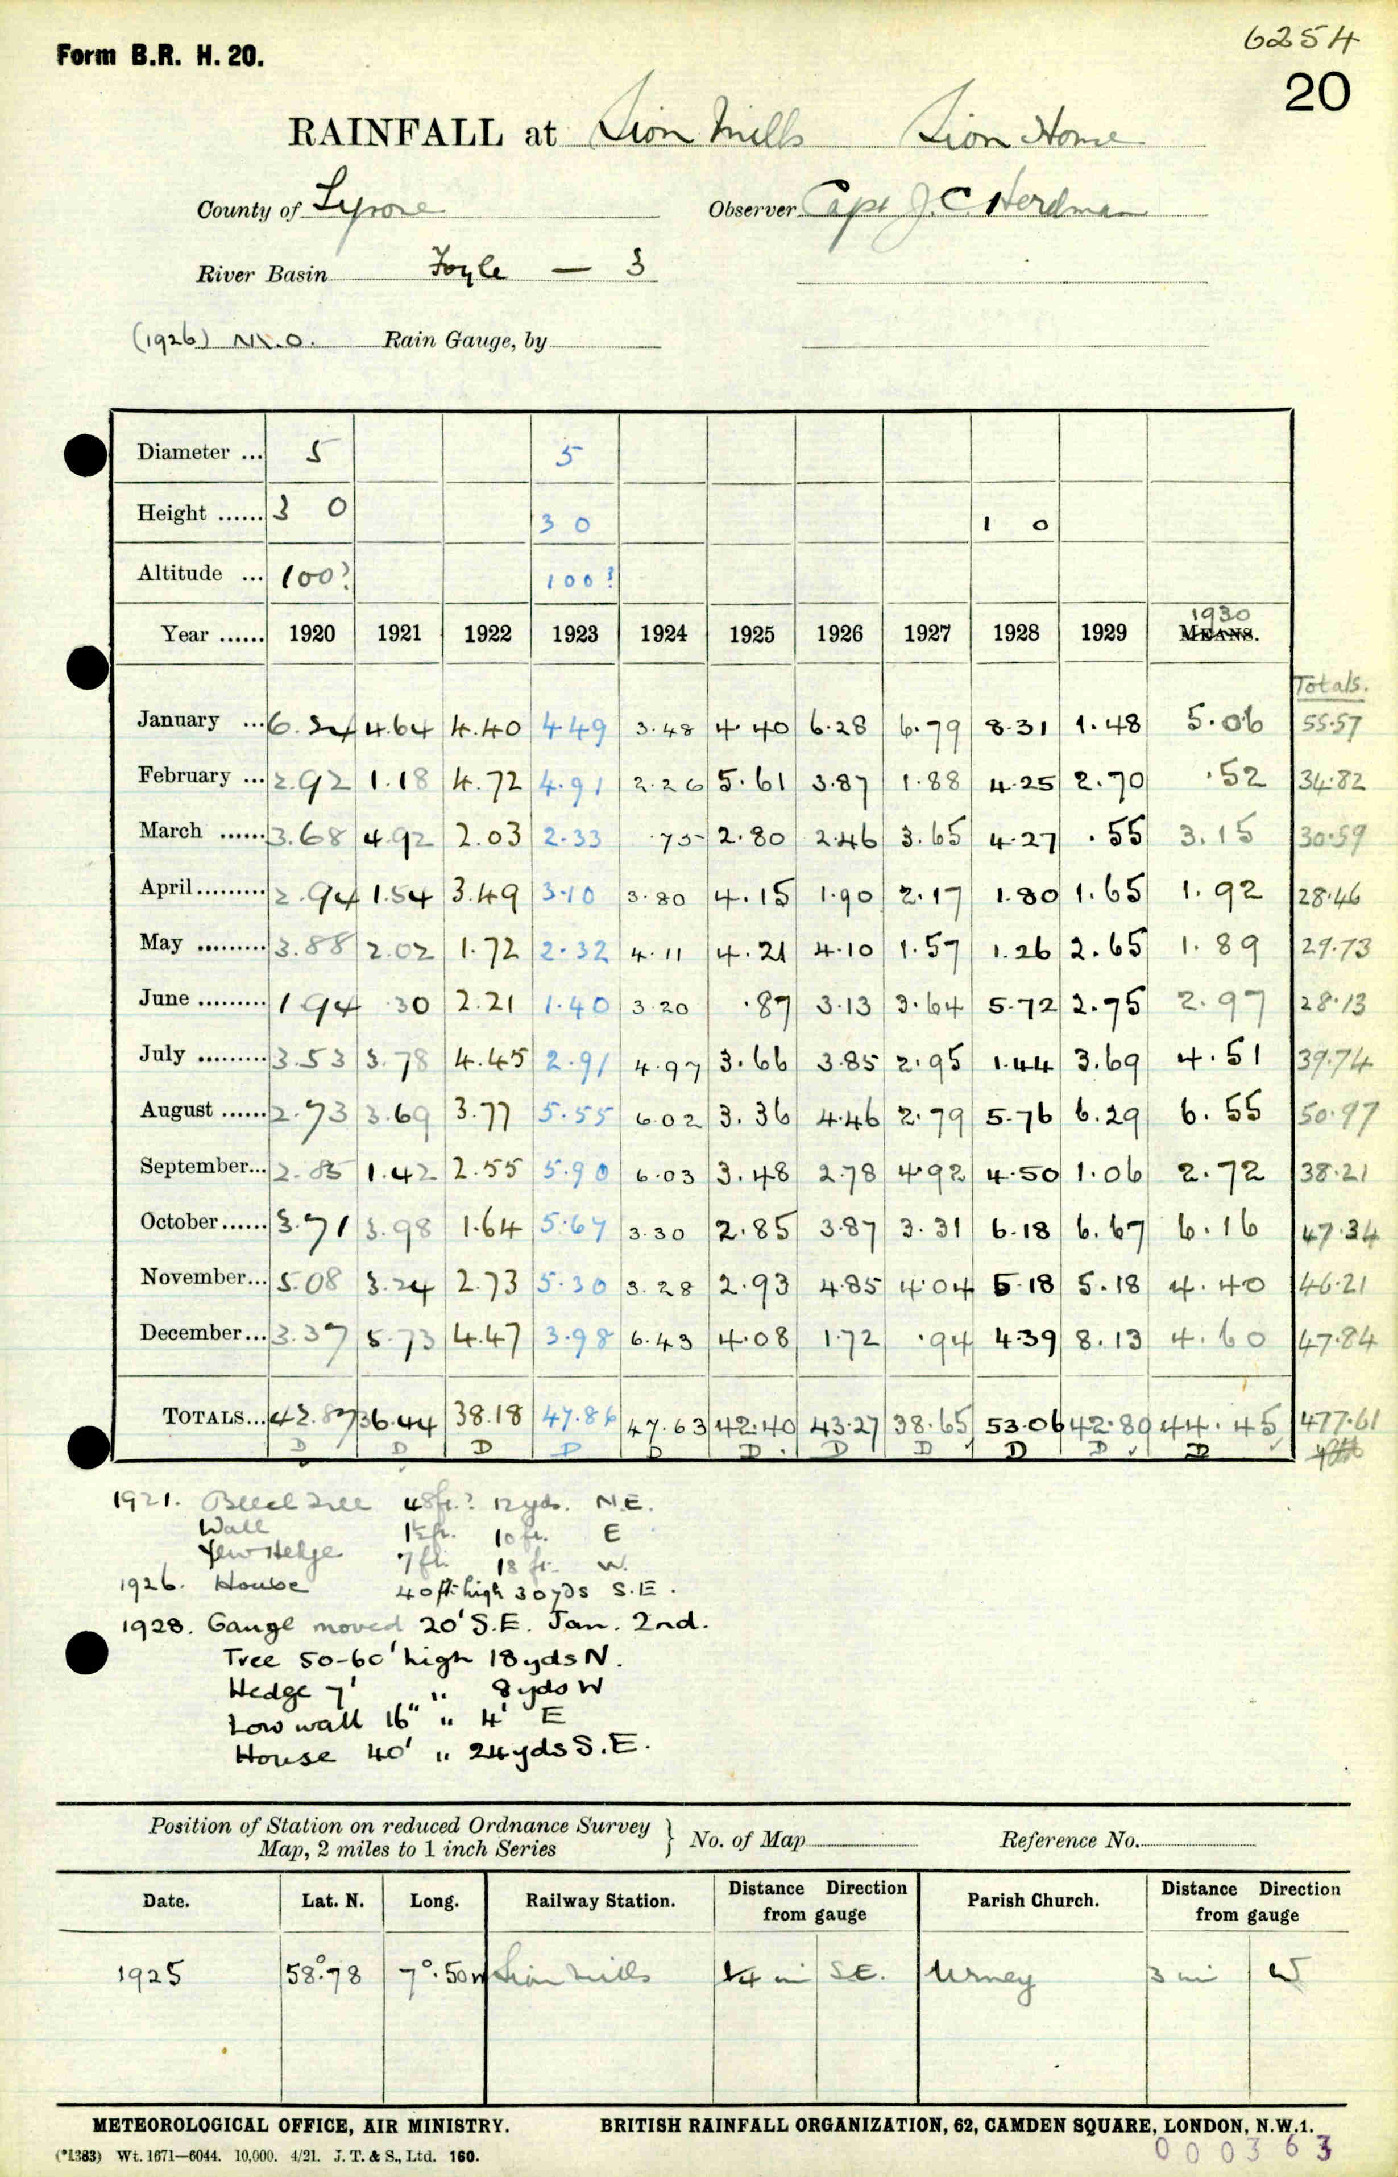 6254
Form B.R. H. 20.
20
RAINFALL at Sion Mills Sion House
County of Tyrone Observer Capt J.C. Herdman
River Basin Foyle — 3
(1926) M.O. Rain Gauge, by
Diameter ... 5 5
Height ...... 3 0 3 0 1 0
Altitude ... 100? 100?
1930
Year ...... 1920 1921 1922 1923 1924 1925 1926 1927 1928 1929 MEANS.
Totals.
January ... 6.24 4.64 4.40 4.49 3.48 4.40 6.28 6.79 8.31 1.48 5.06 55.57
February ... 2.92 1.18 4.72 4.91 2.26 5.61 3.87 1.88 4.25 2.70 .52 34.82
March ...... 3.68 4.92 2.03 2.33 .75 2.80 2.46 3.65 4.27 .55 3.15 30.59
April ......... 2.94 1.54 3.49 3.10 3.80 4.15 1.90 2.17 1.80 1.65 1.92 28.46
May ......... 3.88 2.02 1.72 2.32 4.11 4.21 4.10 1.57 1.26 2.65 1.89 29.73
June ......... 1.94 .30 2.21 1.40 3.20 .87 3.13 3.64 5.72 2.75 2.97 28.13
July ......... 3.53 3.78 4.45 2.91 4.97 3.66 3.85 2.95 1.44 3.69 4.51 39.74
August ...... 2.73 3.69 3.77 5.55 6.02 3.36 4.46 2.79 5.76 6.29 6.55 50.97
September... 2.85 1.42 2.55 5.90 6.03 3.48 2.78 4.92 4.50 1.06 2.72 38.21
October ...... 3.71 3.98 1.64 5.67 3.30 2.85 3.87 3.31 6.18 6.67 6.16 47.34
November... 5.08 3.24 2.73 5.30 3.28 2.93 4.85 4.04 5.18 5.18 4.40 46.21
December ... 3.37 5.73 4.47 3.98 6.43 4.08 1.72 .94 4.39 8.13 4.60 47.84
TOTALS... 42.87 36.44 38.18 47.86 47.63 42.40 43.27 38.65 53.06 42.80 44.45 477.61
D D D D D D D D D D D
1921. Beech Tree 48ft.? 12yds. N.E.
Wall 1½ft. 10ft. E
Yew Hedge 7ft. 18ft. W.
1926. House 40ft. high 30yds S.E.
1928. Gauge moved 20' S.E. Jan. 2nd.
Tree 50-60' high 18yds N.
Hedge 7' " 8yds W
Low wall 16" " 4' E
House 40' " 24yds S.E.
Position of Station on reduced Ordnance Survey
Map, 2 miles to 1 inch Series } No. of Map Reference No.
Date. Lat. N. Long. Railway Station. Distance Direction from gauge Parish Church. Distance Direction from gauge
1925 58°.78 7°.50W Sion Mills ¼ mi S.E. Urney 3 mi W
METEOROLOGICAL OFFICE, AIR MINISTRY. BRITISH RAINFALL ORGANIZATION, 62, CAMDEN SQUARE, LONDON, N.W.1.
(*1383) Wt. 1671—6044. 10,000. 4/21. J. T. & S., Ltd. 160.
000363